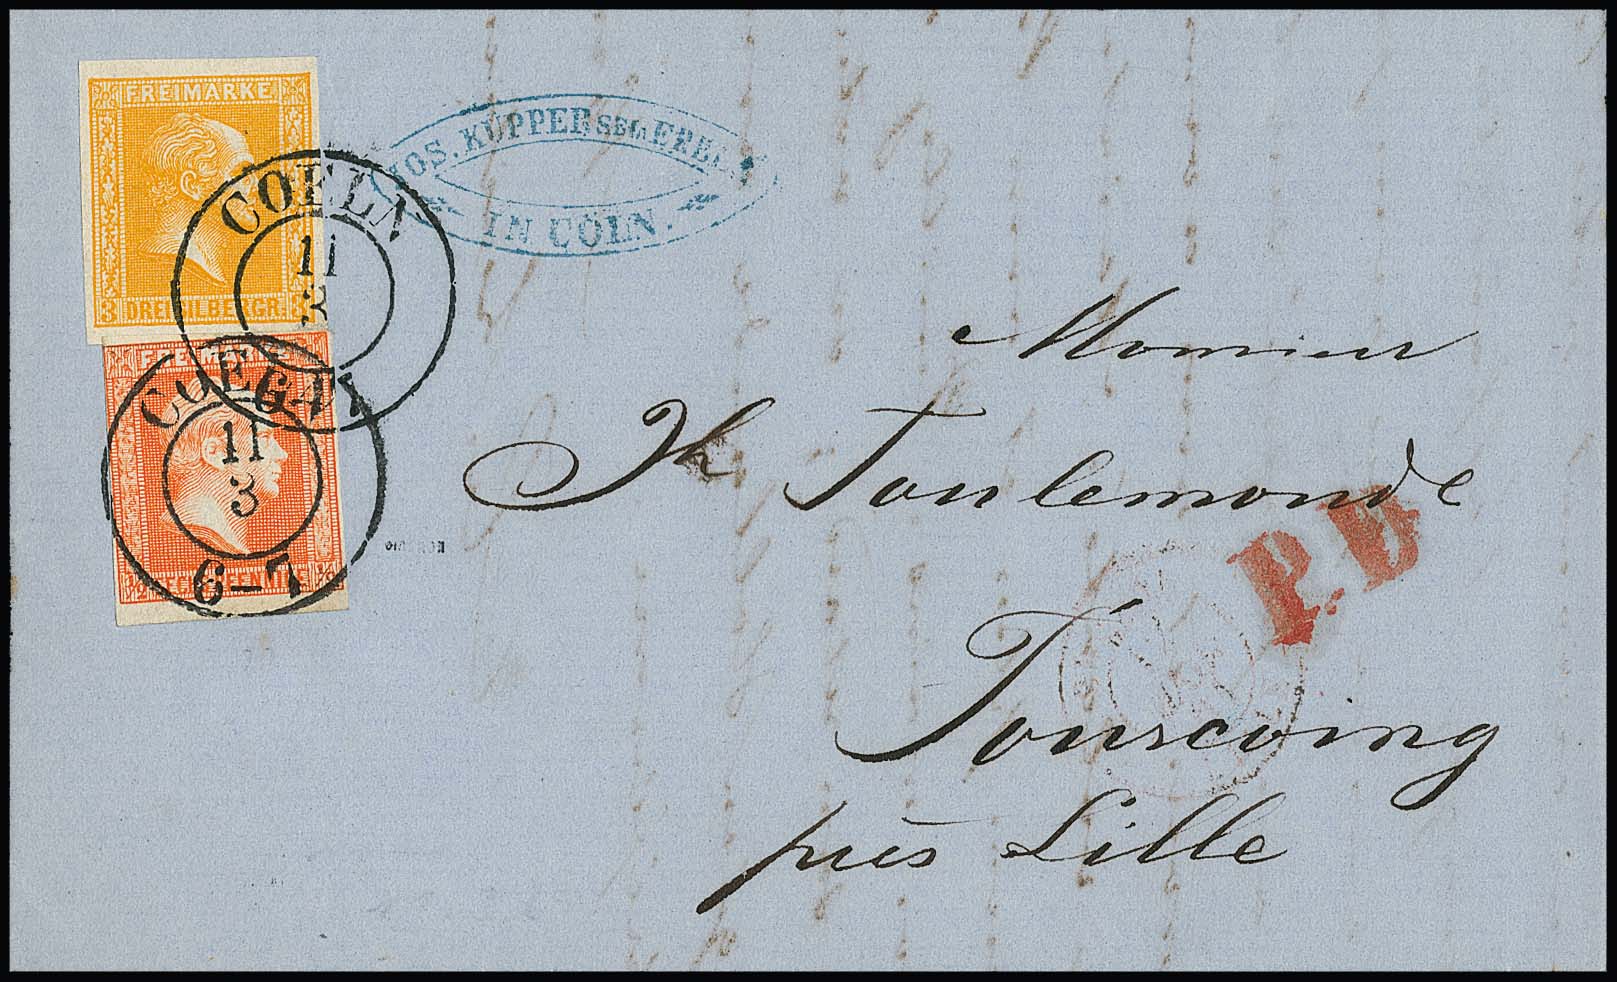 FREIMARKE
3 DREI SILBERGR. 3
COELN
11
3
JOS. KÜPPER SELn ERBEN
IN CÖLN.
FREIMARKE
1/2 SECHS PFENNIGE 1/2
COELN
11
3
6-7
Monsieur
Jh Toulemonde
P.D
Tourcoing
près Lille